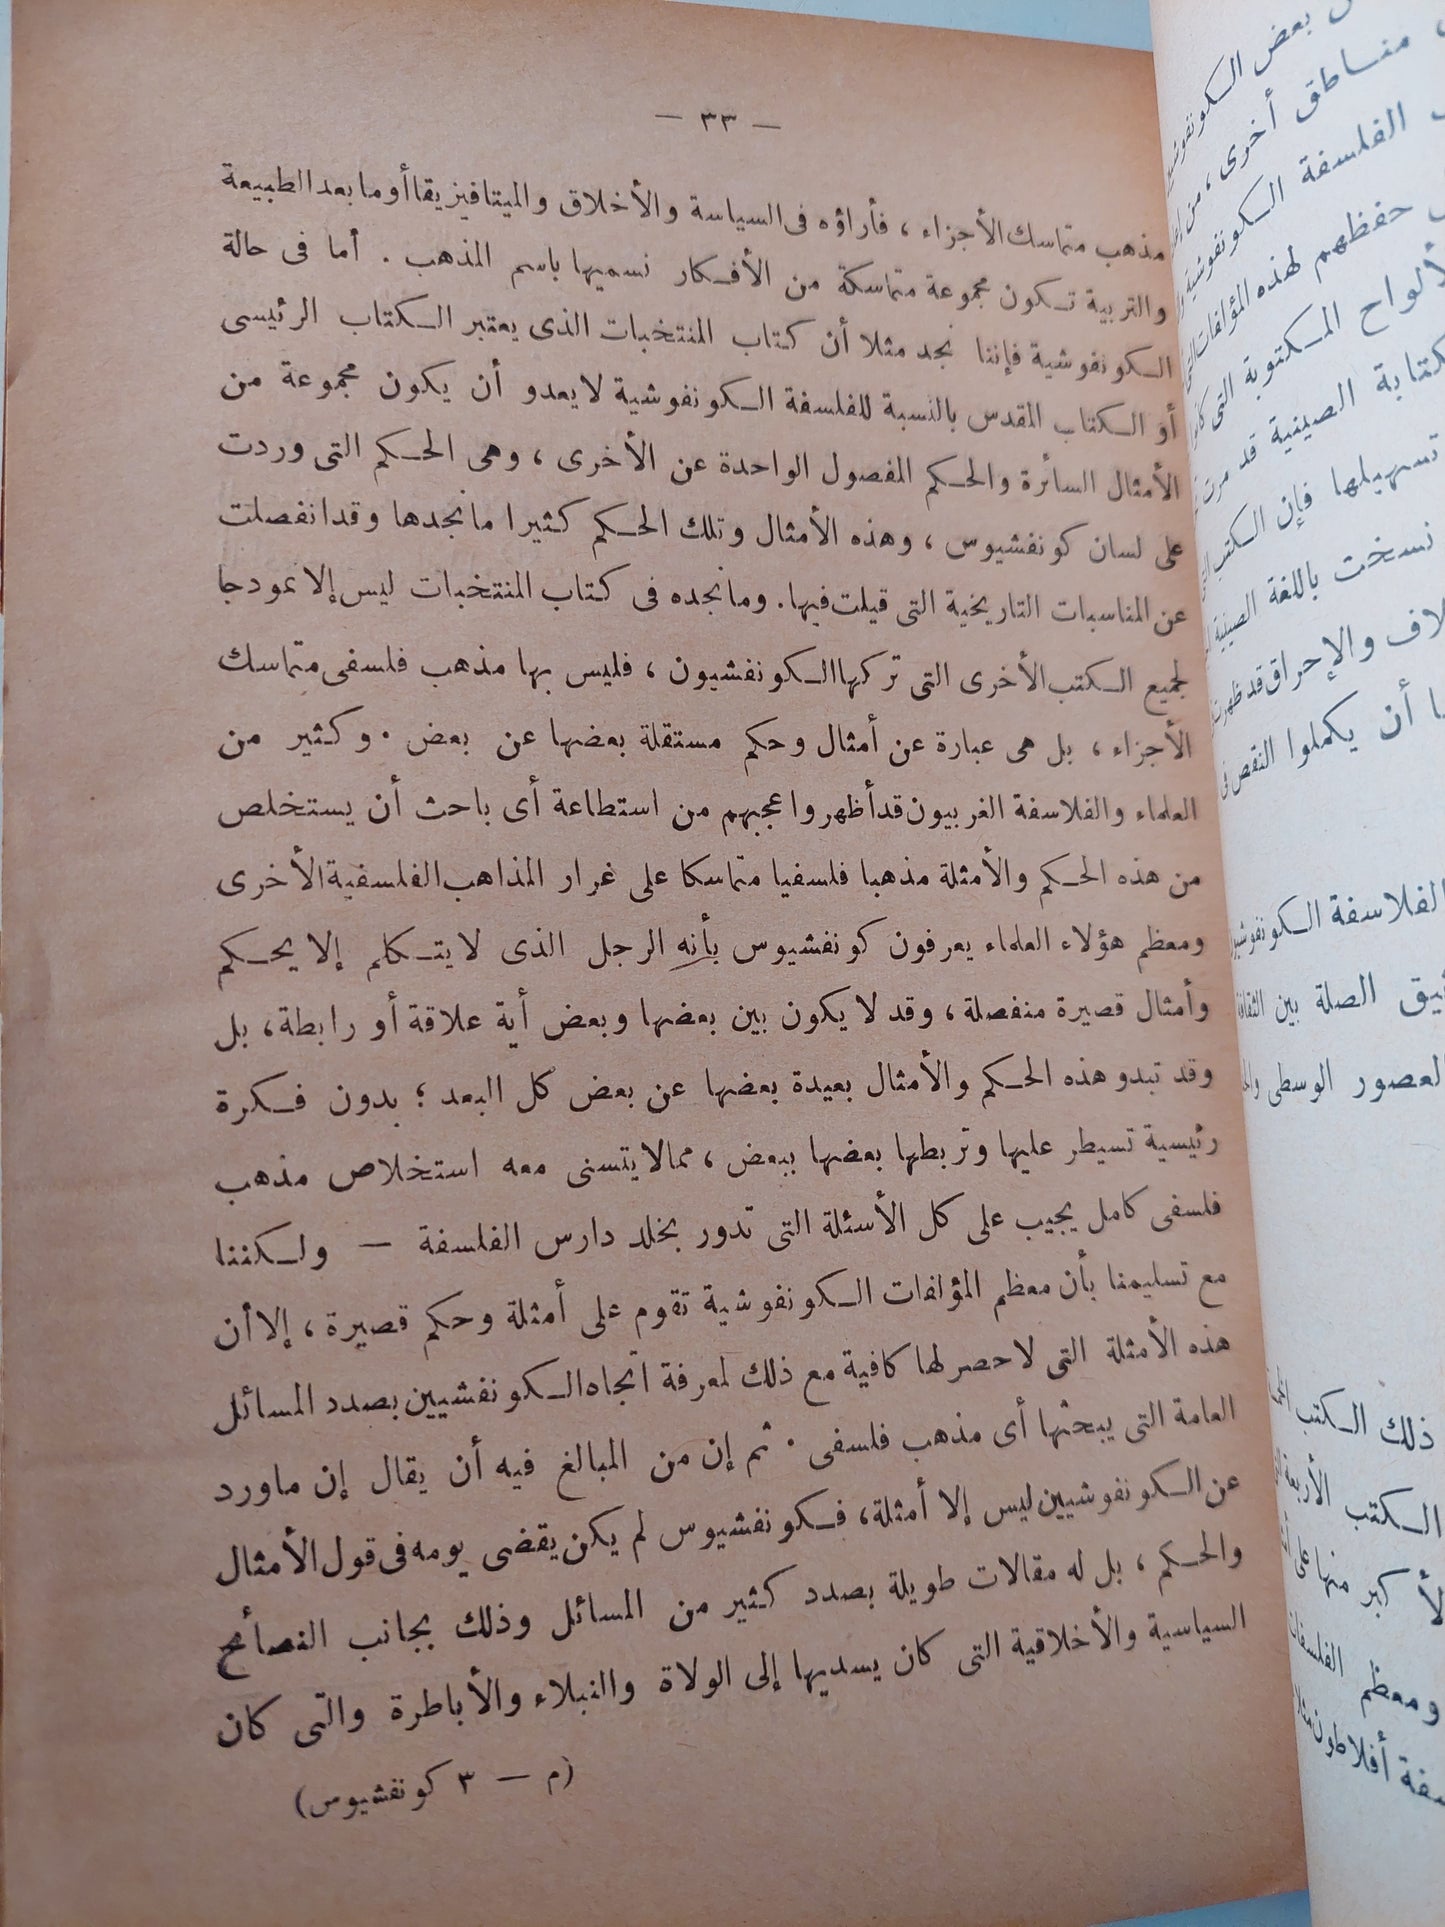 — ٣٣ —
مذهب متماسك الأجزاء ، فأراؤه فى السياسة والأخلاق والميتافيزيقا أو ما بعد الطبيعة
والتربية تكون مجموعة متماسكة من الأفكار نسميها باسم المذهب . أما فى حالة
الكونفوشية فإننا نجد مثلا أن كتاب المنتخبات الذى يعتبر الكتاب الرئيسى
أو الكتاب المقدس بالنسبة للفلسفة الكونفوشية لا يعدو أن يكون مجموعة من
الأمثال السائرة والحكم المفصول الواحدة عن الأخرى ، وهى الحكم التى وردت
على لسان كونفشيوس ، وهذه الأمثال وتلك الحكم كثيرا ما نجدها وقد انفصلت
عن المناسبات التاريخية التى قيلت فيها . وما نجده فى كتاب المنتخبات ليس إلا نموذجا
لجميع الكتب الأخرى التى تركها الكونفشيون ، فليس بها مذهب فلسفى متماسك
الأجزاء ، بل هى عبارة عن أمثال وحكم مستقلة بعضها عن بعض . وكثير من
العلماء والفلاسفة الغربيون قد أظهروا عجبهم من استطاعة أى باحث أن يستخلص
من هذه الحكم والأمثلة مذهبا فلسفيا متماسكا على غرار المذاهب الفلسفية الأخرى
ومعظم هؤلاء العلماء يعرفون كونفشيوس بأنه الرجل الذى لا يتكلم إلا بحكم
وأمثال قصيرة منفصلة ، وقد لا يكون بين بعضها وبعض أية علاقة أو رابطة ، بل
وقد تبدو هذه الحكم والأمثال بعيدة بعضها عن بعض كل البعد ؛ بدون فكرة
رئيسية تسيطر عليها وتربطها بعضها ببعض ، مما لا يتسنى معه استخلاص مذهب
فلسفى كامل يجيب على كل الأسئلة التى تدور بخلد دارس الفلسفة — ولكننا
مع تسليمنا بأن معظم المؤلفات الكونفوشية تقوم على أمثلة وحكم قصيرة ، إلا أن
هذه الأمثلة التى لا حصر لها كافية مع ذلك لمعرفة اتجاه الكونفشيين بصدد المسائل
العامة التى يبحثها أى مذهب فلسفى . ثم إن من المبالغ فيه أن يقال إن ما ورد
عن الكونفوشيين ليس إلا أمثلة ، فكونفشيوس لم يكن يقضى يومه فى قول الأمثال
والحكم ، بل له مقالات طويلة بصدد كثير من المسائل وذلك بجانب النصائح
السياسية والأخلاقية التى كان يسديها إلى الولاة والنبلاء والأباطرة والتى كان
(م — ٣ كونفشيوس)
بعض
مناطق أخرى ، من
الفلسفة الكونفوشية
حفظهم لهذه المؤلفات
الألواح المكتوبة التى
الصينية قد مرت
تسهيلها فإن الكتب
نسخت باللغة الصينية
والإحراق قد ظهرت
أن يكملوا النقص فى
الفلاسفة
الصلة بين
العصور الوسطى
ذلك الكتب
الكتب الأربعة
منها على
ومعظم
أفلاطون مثلا